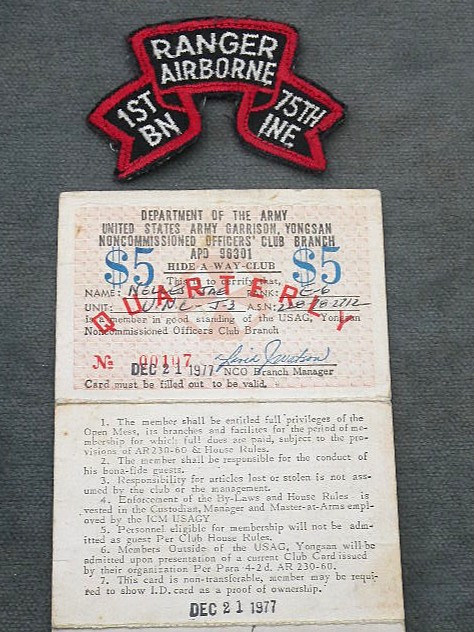 RANGER
AIRBORNE
1ST
BN
75TH
INF
DEPARTMENT OF THE ARMY
UNITED STATES ARMY GARRISON, YONGSAN
NONCOMMISSIONED OFFICERS' CLUB BRANCH
APO 96301
$5 HIDE-A-WAY-CLUB $5
QUARTERLY
This is to certify that
NAME: RANK: E6
UNIT: UNC J-3 A.S.N:
Is a member in good standing of the USAG, Yongsan
Noncommissioned Officers Club Branch
No 00107
DEC 21 1977 NCO Branch Manager
Card must be filled out to be valid.
1. The member shall be entitled full privileges of the
Open Mess, its branches and facilites for the period of mem-
bership for which full dues are paid, subject to the pro-
visions of AR 230-60 & House Rules.
2. The member shall be responsible for the conduct of
his bona-fide guests.
3. Responsibility for articles lost or stolen is not ass-
umed by the club or the management.
4. Enforcement of the By-Laws and House Rules is
vested in the Custodian, Manager and Master-at-Arms empl-
oyed by the ICM USAGY
5. Personnel eligible for membership will not be adm-
itted as guest Per Club House Rules.
6. Members Outside of the USAG, Yongsan will be
admitted upon presentation of a current Club Card issued
by their organization Per Para 4-2d. AR 230-60.
7. This card is non-transferable, member may be requi-
red to show I.D. card as a proof of ownership.
DEC 21 1977